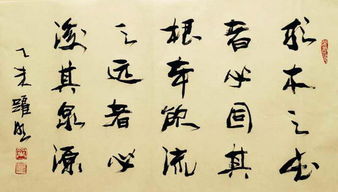 求木之长
者必固其
根本欲流
之远者必
浚其泉源
乙未羅